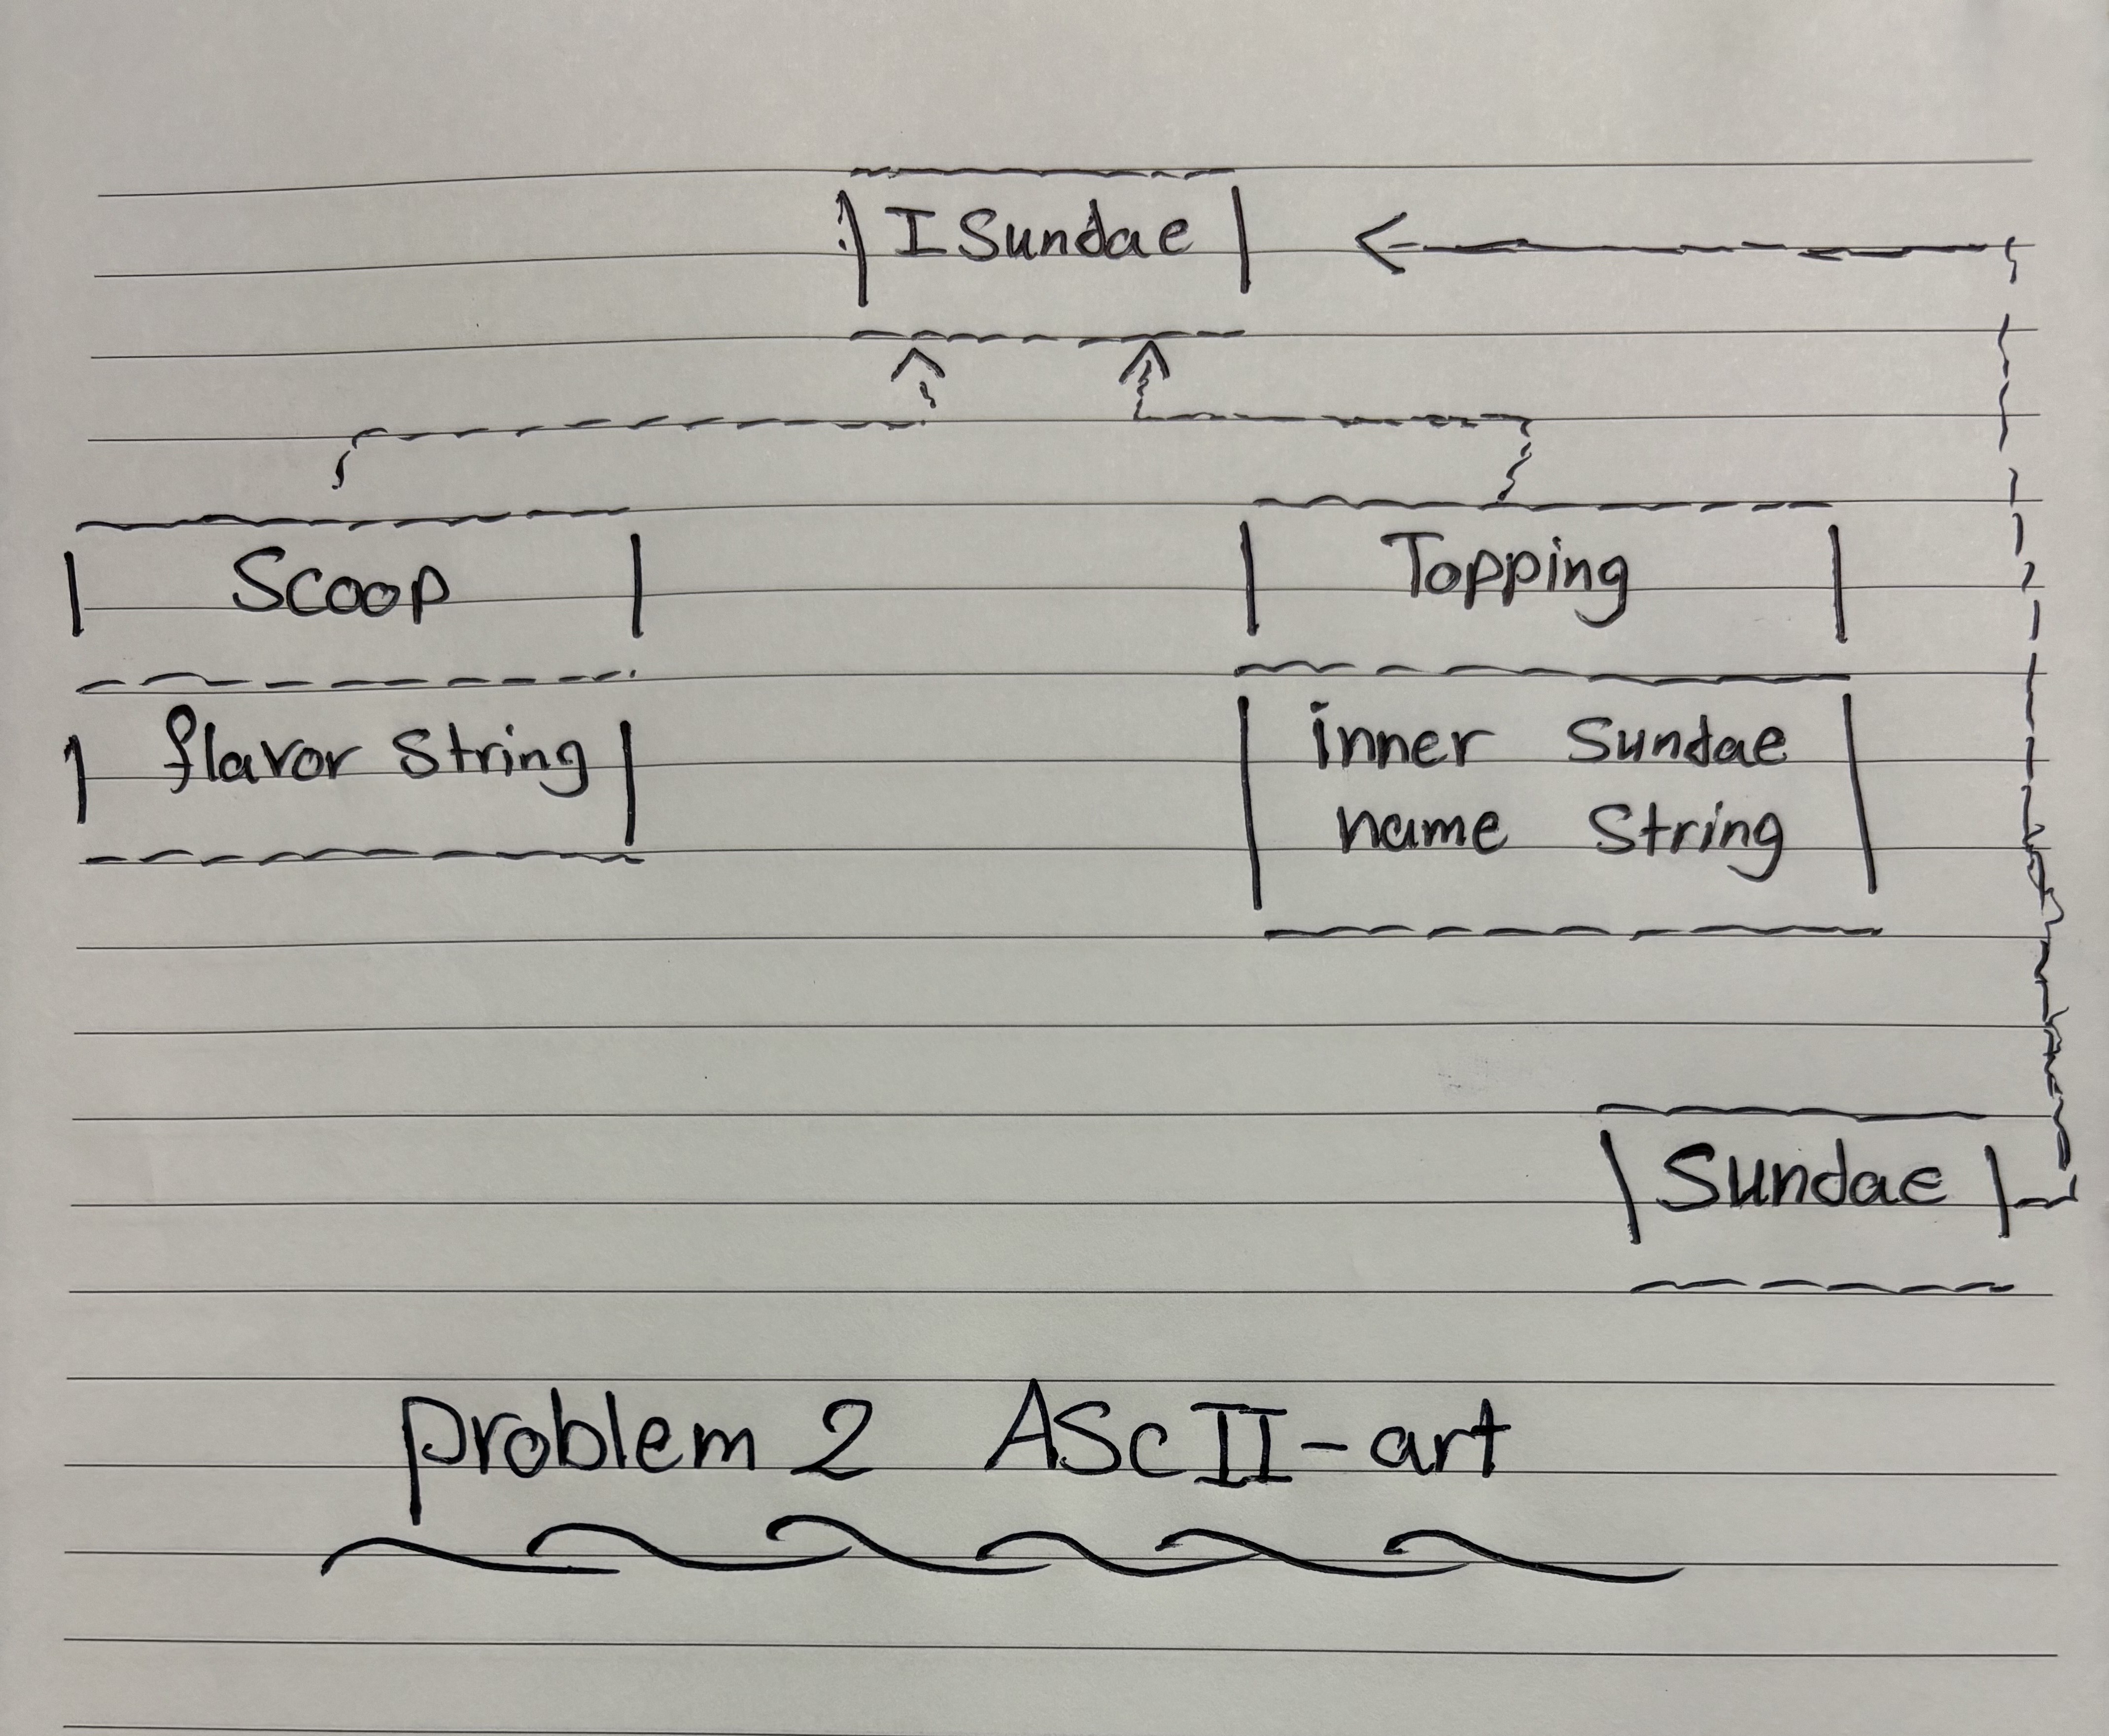 ISundae
Scoop
Topping
flavor String
inner Sundae
name String
Sundae
problem 2 AScII-art